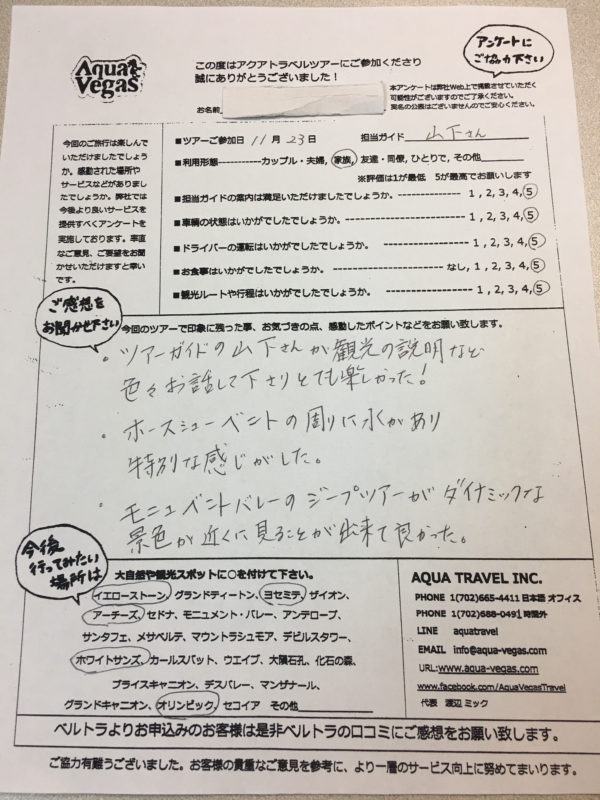 Aqua Vegas
この度はアクアトラベルツアーにご参加くださり
誠にありがとうございました！
アンケートに
ご協力下さい
本アンケートは弊社Web上で掲載させていただく
可能性がございますのでご了承ください。
実名の公表はございませんのでご安心ください。
お名前
今回のご旅行は楽しんで
いただけましたでしょう
か。感動された場所や
サービスなどがありまし
たでしょうか。弊社では
今後より良いサービスを
提供すべくアンケートを
実施しております。率直
なご意見、ご要望をお聞
かせいただけますと幸い
です。
■ツアーご参加日 11月 23日 担当ガイド 山下さん
■利用形態------------カップル・夫婦, 家族, 友達・同僚, ひとりで, その他
※評価は1が最低 5が最高でお願いします
■担当ガイドの案内は満足いただけましたでしょうか。 1 , 2 , 3 , 4, 5
■車輌の状態はいかがでしたでしょうか。 1 , 2 , 3 , 4, 5
■ドライバーの運転はいかがでしたでしょうか。 1 , 2 , 3 , 4, 5
■お食事はいかがでしたでしょうか。 なし, 1 , 2 , 3 , 4, 5
■観光ルートや行程はいかがでしたでしょうか。 1 , 2 , 3 , 4, 5
ご感想を
お聞かせ下さい
今回のツアーで印象に残った事、お気づきの点、感動したポイントなどをお願い致します。
・ツアーガイドの山下さんが観光の説明など
色々お話して下さりとても楽しかった！
・ホースシューベントの周りに水があり
特別な感じがした。
・モニュベントバレーのジープツアーがダイナミックな
景色が近くに見ることが出来て良かった。
今後
行ってみたい
場所は
大自然や観光スポットに○を付けて下さい。
イエローストーン, グランドティートン, ヨセミテ, ザイオン,
アーチーズ, セドナ, モニュメント・バレー, アンテロープ,
サンタフェ、メサベルテ、マウントラシュモア、デビルスタワー、
ホワイトサンズ, カールスバット、ウエイブ、大隕石孔、化石の森、
ブライスキャニオン、デスバレー、マンザナール、
グランドキャニオン, オリンピック, セコイア その他
AQUA TRAVEL INC.
PHONE 1(702)665-4411 日本語 オフィス
PHONE 1(702)688-0491 時間外
LINE aquatravel
EMAIL info@aqua-vegas.com
URL:www.aqua-vegas.com
www.facebook.com/AquaVegasTravel
代表 渡辺 ミック
ベルトラよりお申込みのお客様は是非ベルトラの口コミにご感想をお願い致します。
ご協力有難うございました。お客様の貴重なご意見を参考に、より一層のサービス向上に努めてまいります。